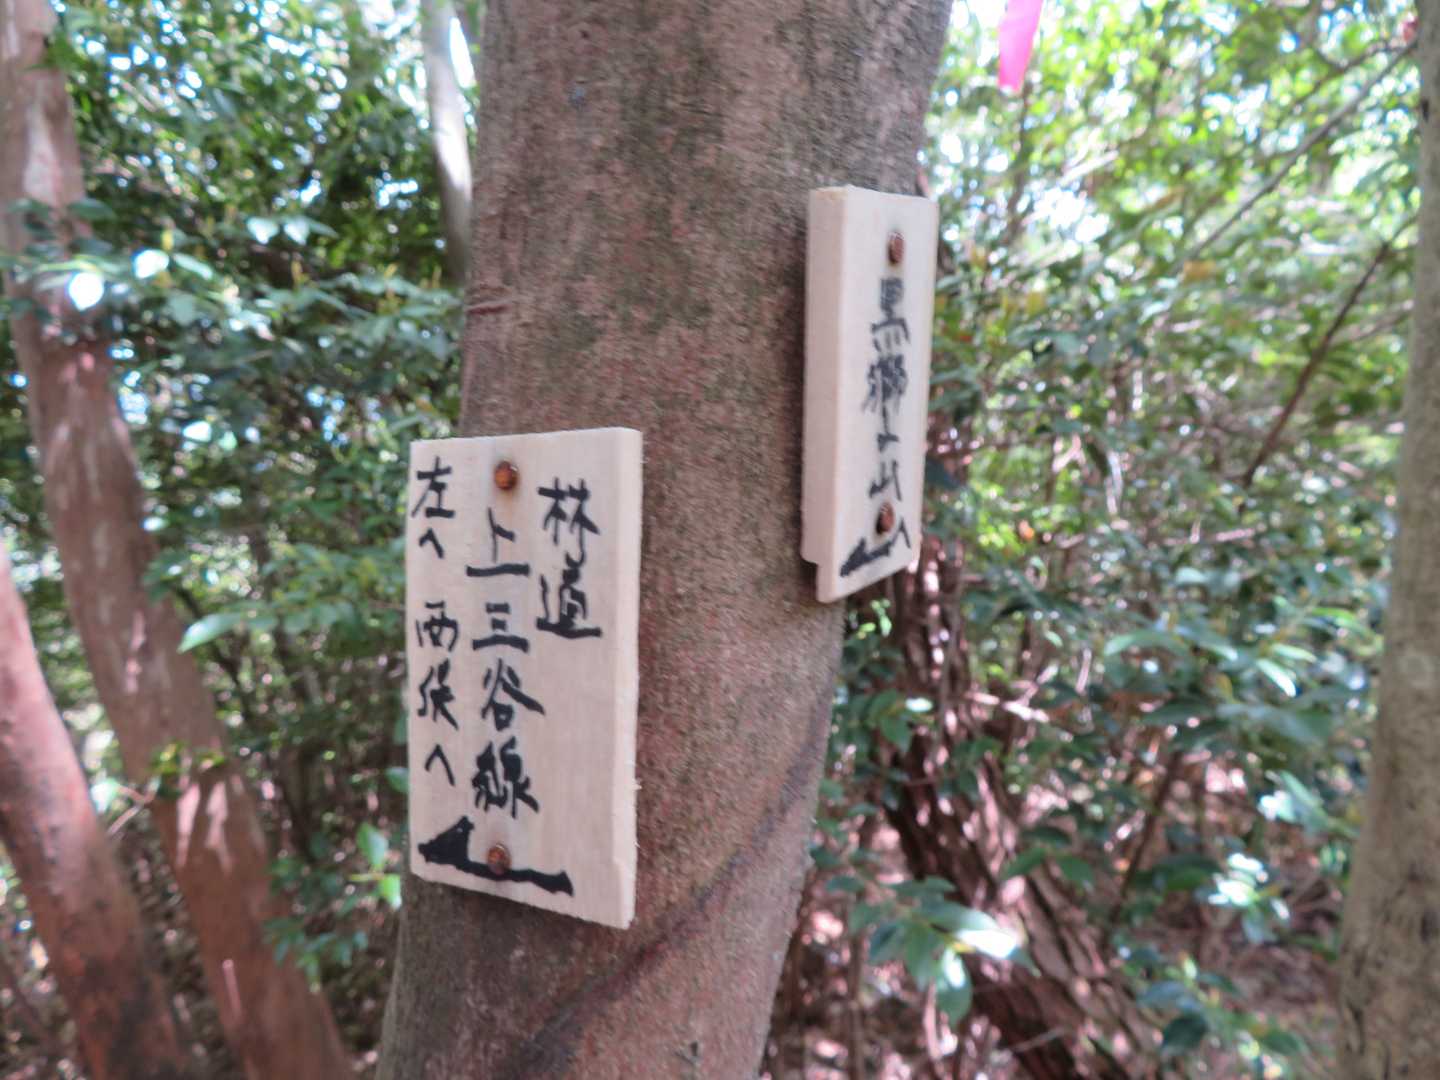 林道
上三谷線
左へ 西俣へ
黒獅子山へ